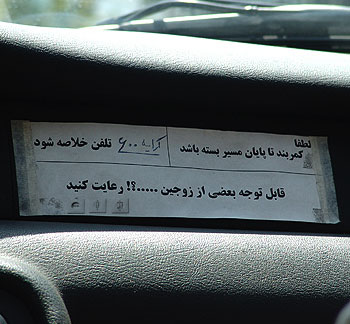 لطفا
کمربند تا پایان مسیر بسته باشد
کرایه ۶۰۰ تلفن خلاصه شود
قابل توجه بعضی از زوجین .....؟! رعایت کنید